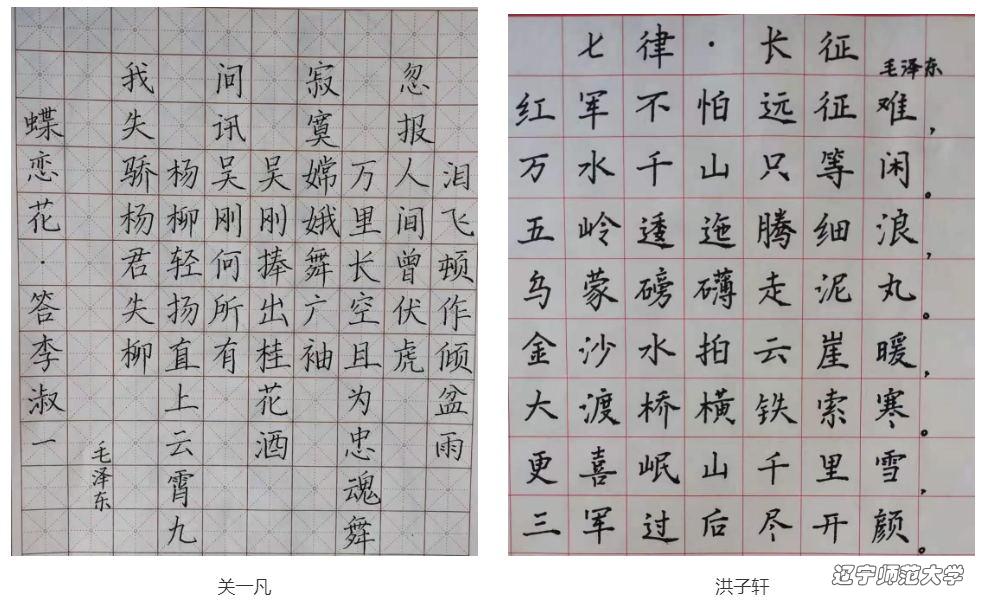 蝶恋花·答李淑一
毛泽东
我失骄杨君失柳
杨柳轻扬直上云霄九
问讯吴刚何所有
吴刚捧出桂花酒
寂寞嫦娥舞广袖
万里长空且为忠魂舞
忽报人间曾伏虎
泪飞顿作倾盆雨
关一凡
七律·长征
毛泽东
红军不怕远征难，
万水千山只等闲。
五岭逶迤腾细浪，
乌蒙磅礴走泥丸。
金沙水拍云崖暖，
大渡桥横铁索寒。
更喜岷山千里雪，
三军过后尽开颜。
洪子轩
辽宁师范大学